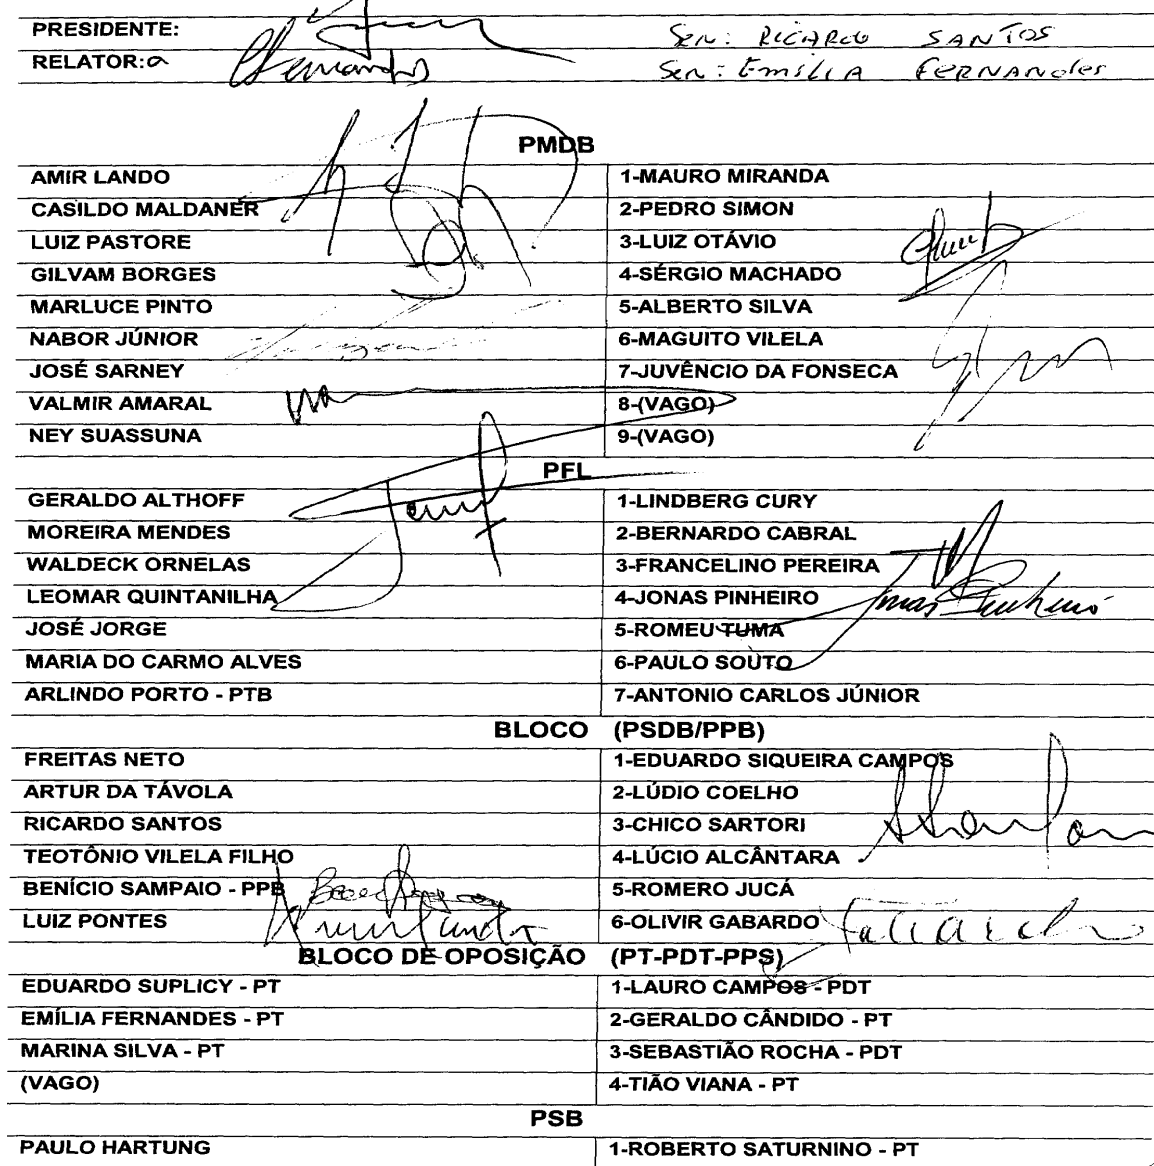 PRESIDENTE: Sen: RICARDO SANTOS
RELATOR:a Fernandes Sen: Emília Fernandes
PMDB
AMIR LANDO 1-MAURO MIRANDA
CASILDO MALDANER 2-PEDRO SIMON
LUIZ PASTORE 3-LUIZ OTÁVIO
GILVAM BORGES 4-SÉRGIO MACHADO
MARLUCE PINTO 5-ALBERTO SILVA
NABOR JÚNIOR 6-MAGUITO VILELA
JOSÉ SARNEY 7-JUVÊNCIO DA FONSECA
VALMIR AMARAL 8-(VAGO)
NEY SUASSUNA 9-(VAGO)
PFL
GERALDO ALTHOFF 1-LINDBERG CURY
MOREIRA MENDES 2-BERNARDO CABRAL
WALDECK ORNELAS 3-FRANCELINO PEREIRA
LEOMAR QUINTANILHA 4-JONAS PINHEIRO Jonas Pinheiro
JOSÉ JORGE 5-ROMEU TUMA
MARIA DO CARMO ALVES 6-PAULO SOUTO
ARLINDO PORTO - PTB 7-ANTONIO CARLOS JÚNIOR
BLOCO (PSDB/PPB)
FREITAS NETO 1-EDUARDO SIQUEIRA CAMPOS
ARTUR DA TÁVOLA 2-LÚDIO COELHO
RICARDO SANTOS 3-CHICO SARTORI
TEOTÔNIO VILELA FILHO 4-LÚCIO ALCÂNTARA
BENÍCIO SAMPAIO - PPB 5-ROMERO JUCÁ
LUIZ PONTES 6-OLIVIR GABARDO
BLOCO DE OPOSIÇÃO (PT-PDT-PPS)
EDUARDO SUPLICY - PT 1-LAURO CAMPOS - PDT
EMÍLIA FERNANDES - PT 2-GERALDO CÂNDIDO - PT
MARINA SILVA - PT 3-SEBASTIÃO ROCHA - PDT
(VAGO) 4-TIÃO VIANA - PT
PSB
PAULO HARTUNG 1-ROBERTO SATURNINO - PT